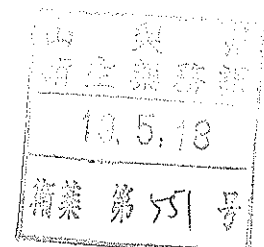 山 梨 県
衛生薬務課
10. 5. 18
衛薬 第 551 号